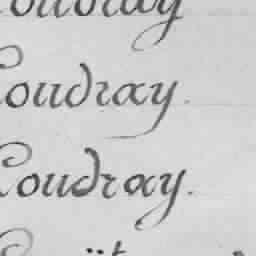 Coudray
Coudray.
Coudray.